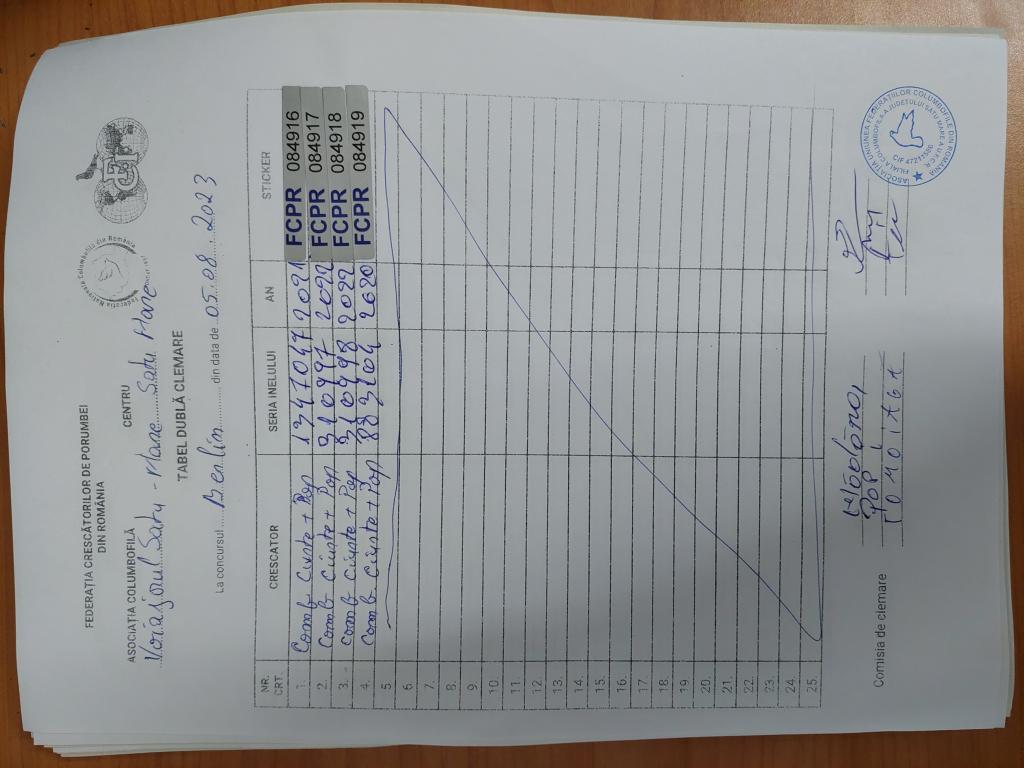 FEDERAȚIA CRESCĂTORILOR DE PORUMBEI
DIN ROMÂNIA
Federația Națională Columbofilă din România
ASOCIAȚIA COLUMBOFILĂ
CENTRU
Voiajorul Satu-Mare Satu Mare
TABEL DUBLĂ CLEMARE
La concursul Berlin din data de 05.08.2023
NR. CRT. CRESCATOR SERIA INELULUI AN STICKER
1. Comb Ciuste + Pop 1347047 2021 FCPR 084916
2. Comb Ciuste + Pop 310997 2022 FCPR 084917
3. Comb Ciuste + Pop 310998 2022 FCPR 084918
4. Comb Ciuste + Pop 883104 2020 FCPR 084919
5.
6.
7.
8.
9.
10.
11.
12.
13.
14.
15.
16.
17.
18.
19.
20.
21.
22.
23.
24.
25.
Comisia de clemare
POP
ASOCIAȚIA UNIUNEA FEDERAȚIILOR COLUMBOFILE DIN ROMÂNIA
FILIALA COLUMBOFILĂ A JUDEȚULUI SATU MARE A U.F.C.R.